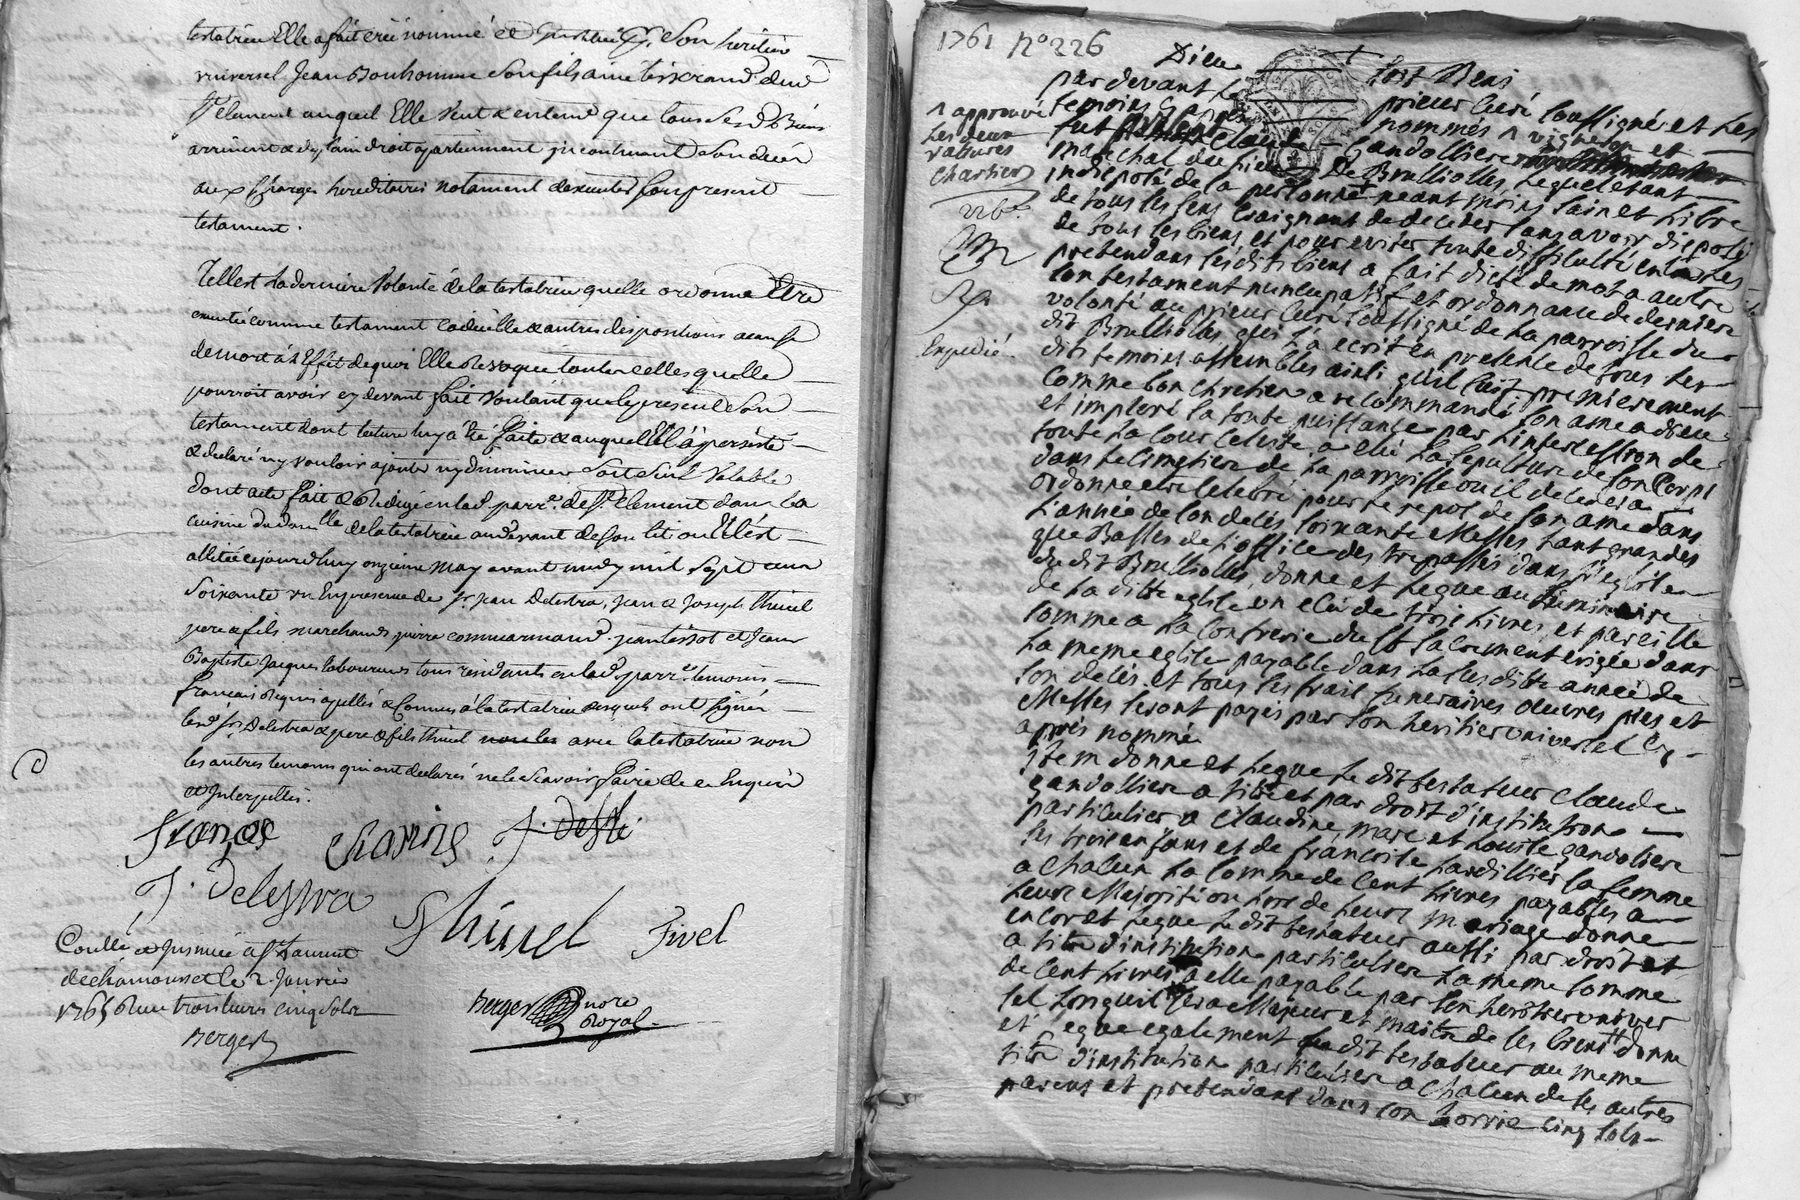 testatrice Elle a fait créé nommé et institué son heritier
universel Jean Bonhomme son fils ainé tisserand dud
St Clement auquel Elle veut & entend que tous sesd Biens
arrivent & de plain droit apartiennent incontinent a son deces
aux charges hereditaires notament d'executer son present
testament.
Telle est la derniere volonté de la testatrice quelle ordonne Etre
executée comme testament codicille & autres dispositions a cause
de mort à l'Effet de quoi Elle Revoque toutes celles quelle
pourroit avoir cy devant fait voulant que le present son
testament dont lecture luy a été faite & auquel Elle a persisté
& declaré n'y vouloir ajouter ny diminuer soit seul valable
dont acte fait & Redigé en lad. parr.e de St Clement dans la
cuisine du domicille de la testatrice au devant de son lit ou Elle est
allitée cejourdhuy onzieme may avant midy mil sept cent
soixante un En presence de Sr Jean Delestra, Jean & Joseph Thivel
pere & fils marchands pierre jean et Jean
Baptiste Jacques laboureurs tous residents en lad. parr.e temoins
français Requis apellés & connus à la testatrice desquels ont signé
led. Sr Delestra & pere & fils thivel avec la testatrice non
les autres temoins qui ont declarés ne le scavoir faire de ce Enquis
et Interpellés.
Franç
J. Delestra
Thivel Fivel
Coullé et Insinué a St Laurent
de chamousset le 2 Janvier
1765 Reçu trois livres cinq sols
Berger
Berger nore
Royal
1761 No 226
Dieu soit Beni
par devant le prieur Curé soussigné et les
temoins nommés ^ vigneron et
^ approuvé
les deux
ratures
Chartier
226
Expedié
fut Claude Gandolliere
marechal du lieu De Brulliolles, lequel etant
indisposé de sa personne neant moins sain et libre
de tous ses sens craignant de deceder sans avoir disposé
de tous ses biens, et pour eviter toute difficulté entre les
pretendans sesdits biens a fait dicté de mot a autre
son testament nuncupatif et ordonnance de derniere
volonté au prieur Curé soussigné de la parroisse du
dit Brulliolles qui l'a ecrit en presence de tous les
dits temoins assemblés ainsi qu'il suit. premierement
comme bon chretien a recommandé son ame a dieu
et imploré sa toute puissance par l'intercession de
toute la cour celeste, a elu la sepulture de son Corps
dans le cimetiere de la parroisse ou il decedera
ordonne etre celebré pour le repos de son ame dans
l'année de son decés soixante Messes tant grandes
que Basses de l'office des trepassés dans l'eglise
du dit Brulliolles, donne et legue au luminaire
de la ditte eglise un ecu de trois livres et pareille
somme a la confrerie du St Sacrement erigée dans
la meme eglise payable dans la susditte année de
son decés. et tous ses frais funeraires oeuvres pies et
Messes seront payés par son heritier universel cy
aprés nommé
item donne et legue le dit testateur Claude
gandolliere a titre et par droit d'institution
particuliere a Claudine, marc et Louise gandoliere
ses trois enfans et de francoise hardillier sa femme
a chacun la somme de Cent livres payables a
leurs Majorition hors de leurs mariage donne
encor et legue le dit testateur aussi par droit et
a titre d'institution particuliere la meme somme
de Cent Livres a elle payable par son heritier univer
sel Lonquil sera Majeur et maitre de ses biens donne
et legue egalement le dit testateur au meme
titre d'institution particuliere a chacun de ses autres
parens et pretendans dans son hoirie Cinq sols